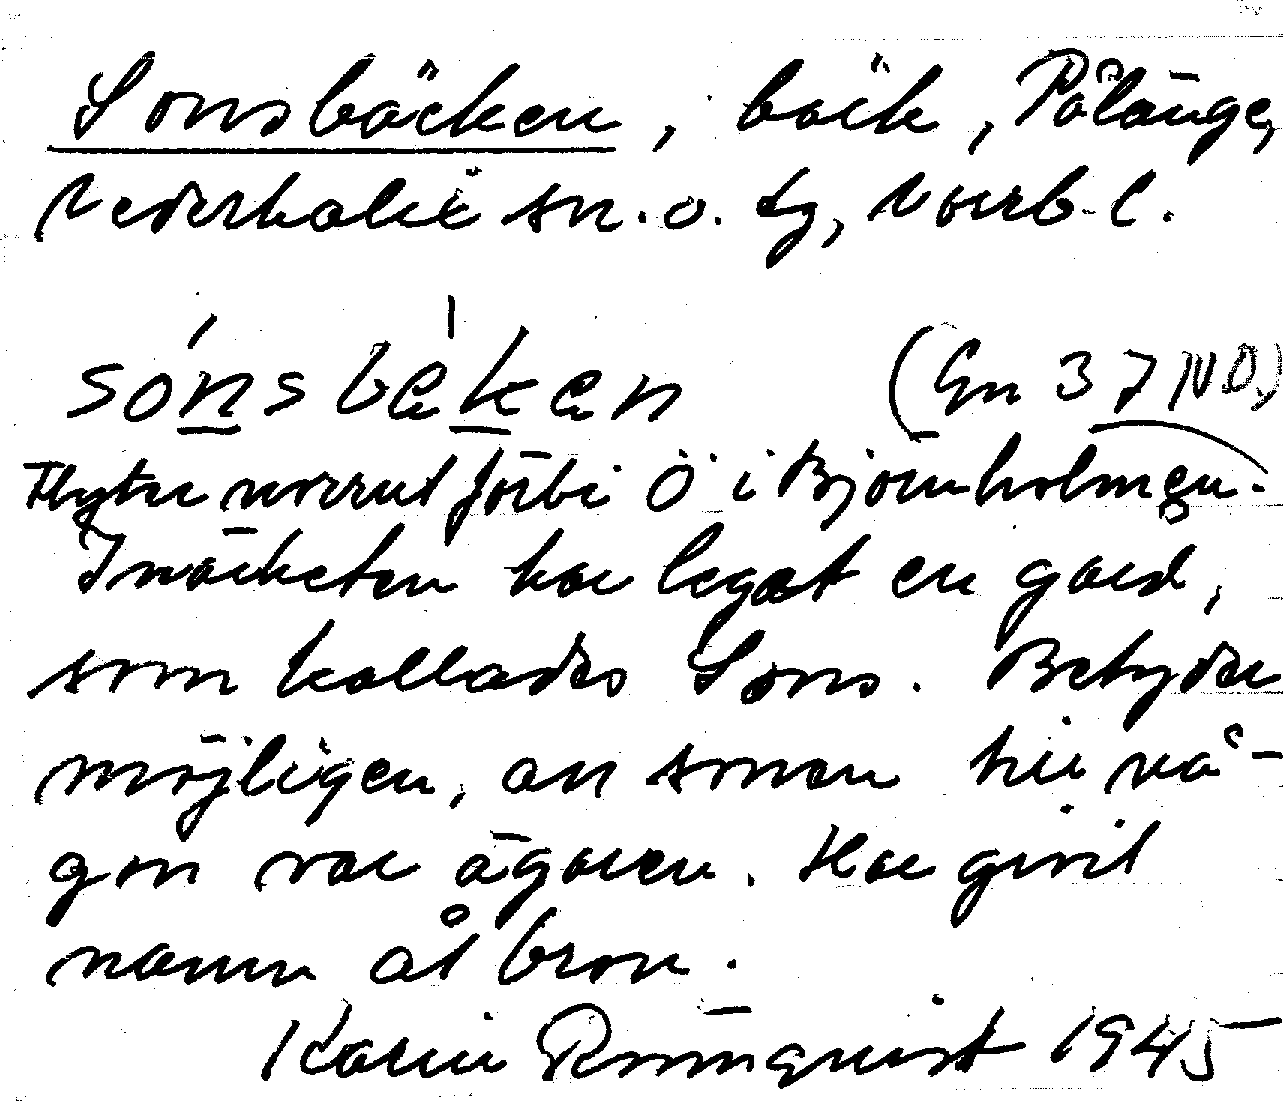 Sonsbäcken, bäck, Pålänge,
Nederkalix sn. o. tg, Norrb. l.
sónsbéken (Gn 37 NO)
Flyter norrut förbi Ö i Björnholmen.
I närheten har legat en gård,
som kallades Sons. Betyder
möjligen, an sonen till nå-
gon var ägaren. Har givit
namn åt bron.
Karin Rönnquist 1945